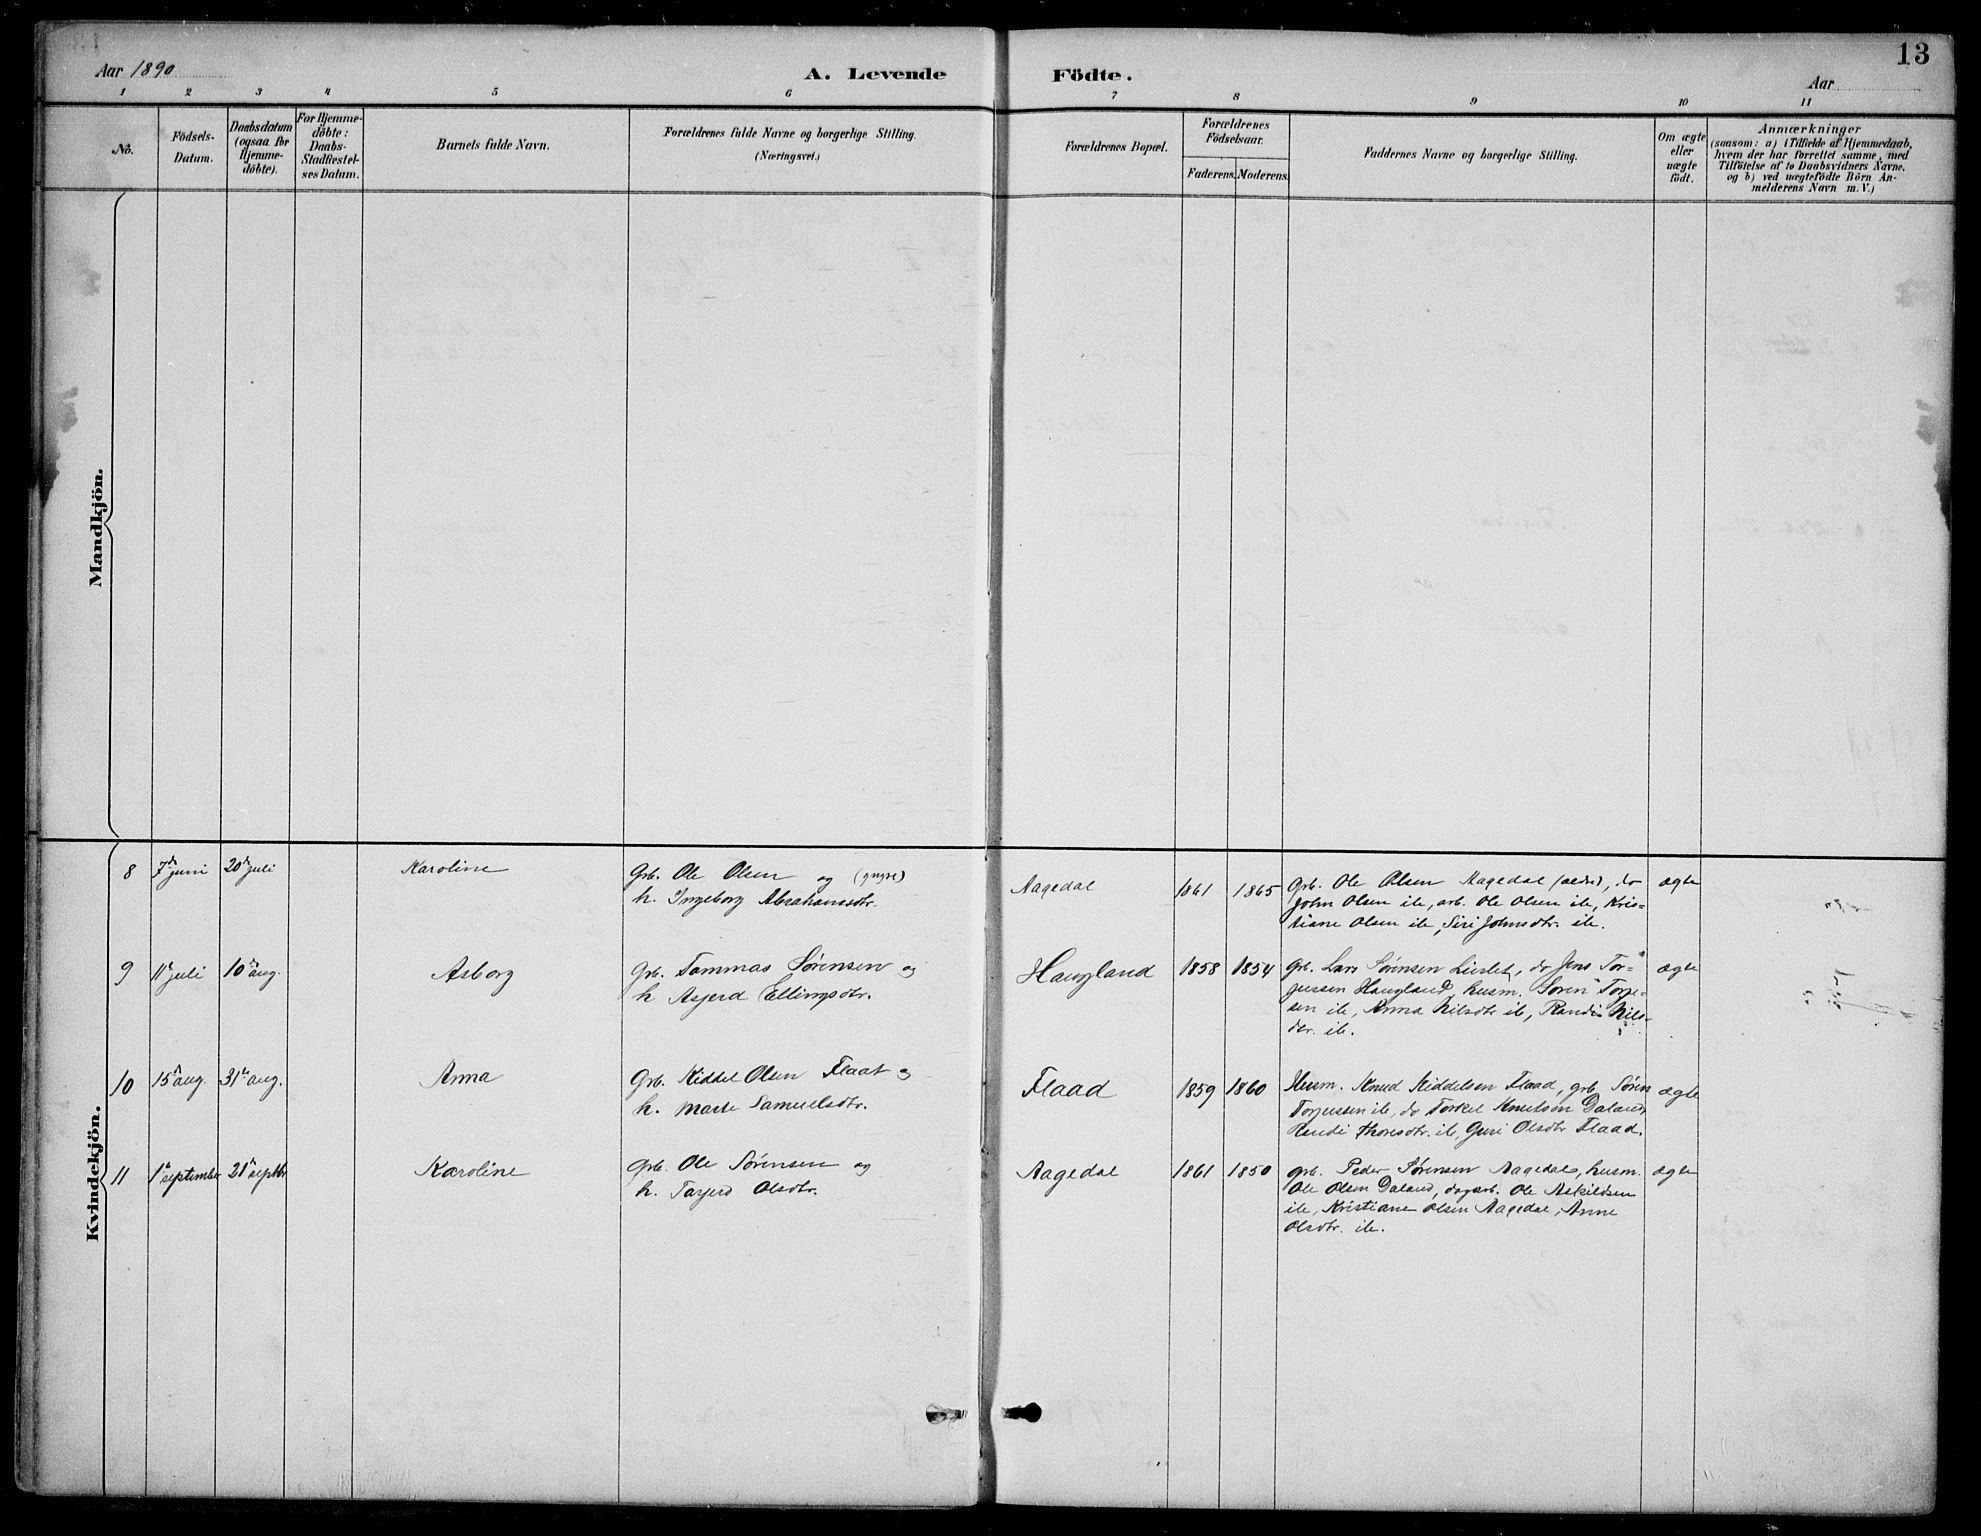 13
Aar 1890
A. Levende Födte.
Aar
1 2 3 4 5 6 7 8 9 10 11
No.
Födsels-
Datum.
Daabsdatum
(ogsaa for
Hjemme-
döbte).
For Hjemme-
döbte:
Daabs-
Stadfæstel-
ses Datum.
Barnets fulde Navn.
Forældrenes fulde Navne og borgerlige Stilling.
(Næringsvei.)
Forældrenes Bopæl.
Forældrenes
Födselsaar.
Faderens. Moderens.
Faddernes Navne og borgerlige Stilling.
Om ægte
eller
uægte
födt.
Anmærkninger
(saasom: a) i Tilfælde af Hjemmedaab,
hvem der har forrettet samme, med
Tilföielse af to Daabsvidners Navne,
og b) ved uægtefödte Börn An-
melderens Navn m. V.)
Mandkjön.
Kvindekjön.
8 7de juni 20de juli Karoline
Grb. Ole Olsen og (yngre)
h. Ingeborg Abrahamsdtr.
Aagedal 1861 1865
Grb. Ole Olsen Aagedal (ældre), do
John Olsen ib, arb. Ole Olsen ib, Kris-
tiane Olsen ib, Siri Johnsdtr. ib.
ægte
9 11te juli 10de aug. Asborg
Grb. Tammas Sørensen og
h Asjerd Ellingsdtr.
Haugland 1858 1854
Grb. Lars Sørensen Lislet, do Jens Tor-
jussen Haugland, husm. Søren Torje-
sen ib, Anna Nilsdtr ib, Randi Nils-
dtr. ib.
ægte
10 15de aug. 31te aug. Anna
Grb. Kiddel Olsen Flaat og
h. Marte Samuelsdtr.
Flaad 1859 1860
Husm. Knud Kiddelsen Flaad, grb Søren
Torjussen ib, do Torkel Knutsen Daland,
Randi Thoresdtr. ib, Guri Olsdtr Flaad.
ægte
11 1te september 21de septbr Karoline
Grb. Ole Sørensen og
h. Tarjerd Olsdtr.
Aagedal 1861 1850
grb. Peder Sørensen Aagedal, husm.
Ole Olsen Daland, dagarb. Ole Askildsen
ib, Kristiane Olsen Aagedal, Anne
Olsdtr. ib.
ægte